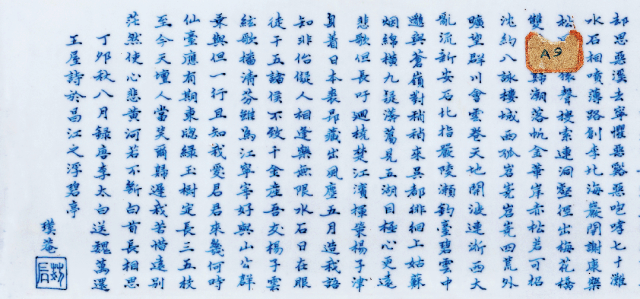 却思惡溪去寧懼惡溪惡咆哮七十灘
水石相噴薄路創李北海巖開謝康樂
松聲搜索連洞壑徑出梅花橋
雙歸潮落帆金華岸赤松若可招
沈約八詠樓城西孤岧嶤岧嶤四荒外
曠望群川會雲卷天地開波連浙西大
亂流新安北指嚴陵瀨釣臺碧雲中
邈與蒼嶺對稍稍來吳都徘徊上姑蘇
烟綿橫九疑漭蕩見五湖目極心更遠
悲歌但長吁迴橈楚江濱揮策揚子津
身着日本裘昂藏出風塵五月造我語
知非佁儗人相逢樂無限水石日在眼
徒干五諸侯不致千金產吾友揚子雲
絃歌播清芬雖為江寧宰好與山公群
乘興但一行且知我愛君君來幾何時
仙臺應有期東窓綠玉樹定長三五枝
至今天壇人當笑爾歸遲我苦惜遠別
茫然使心悲黃河若不斷白首長相思
丁卯秋八月錄唐李太白送魏萬還
王屋詩於昌江之浮碧亭
璞菴
A9